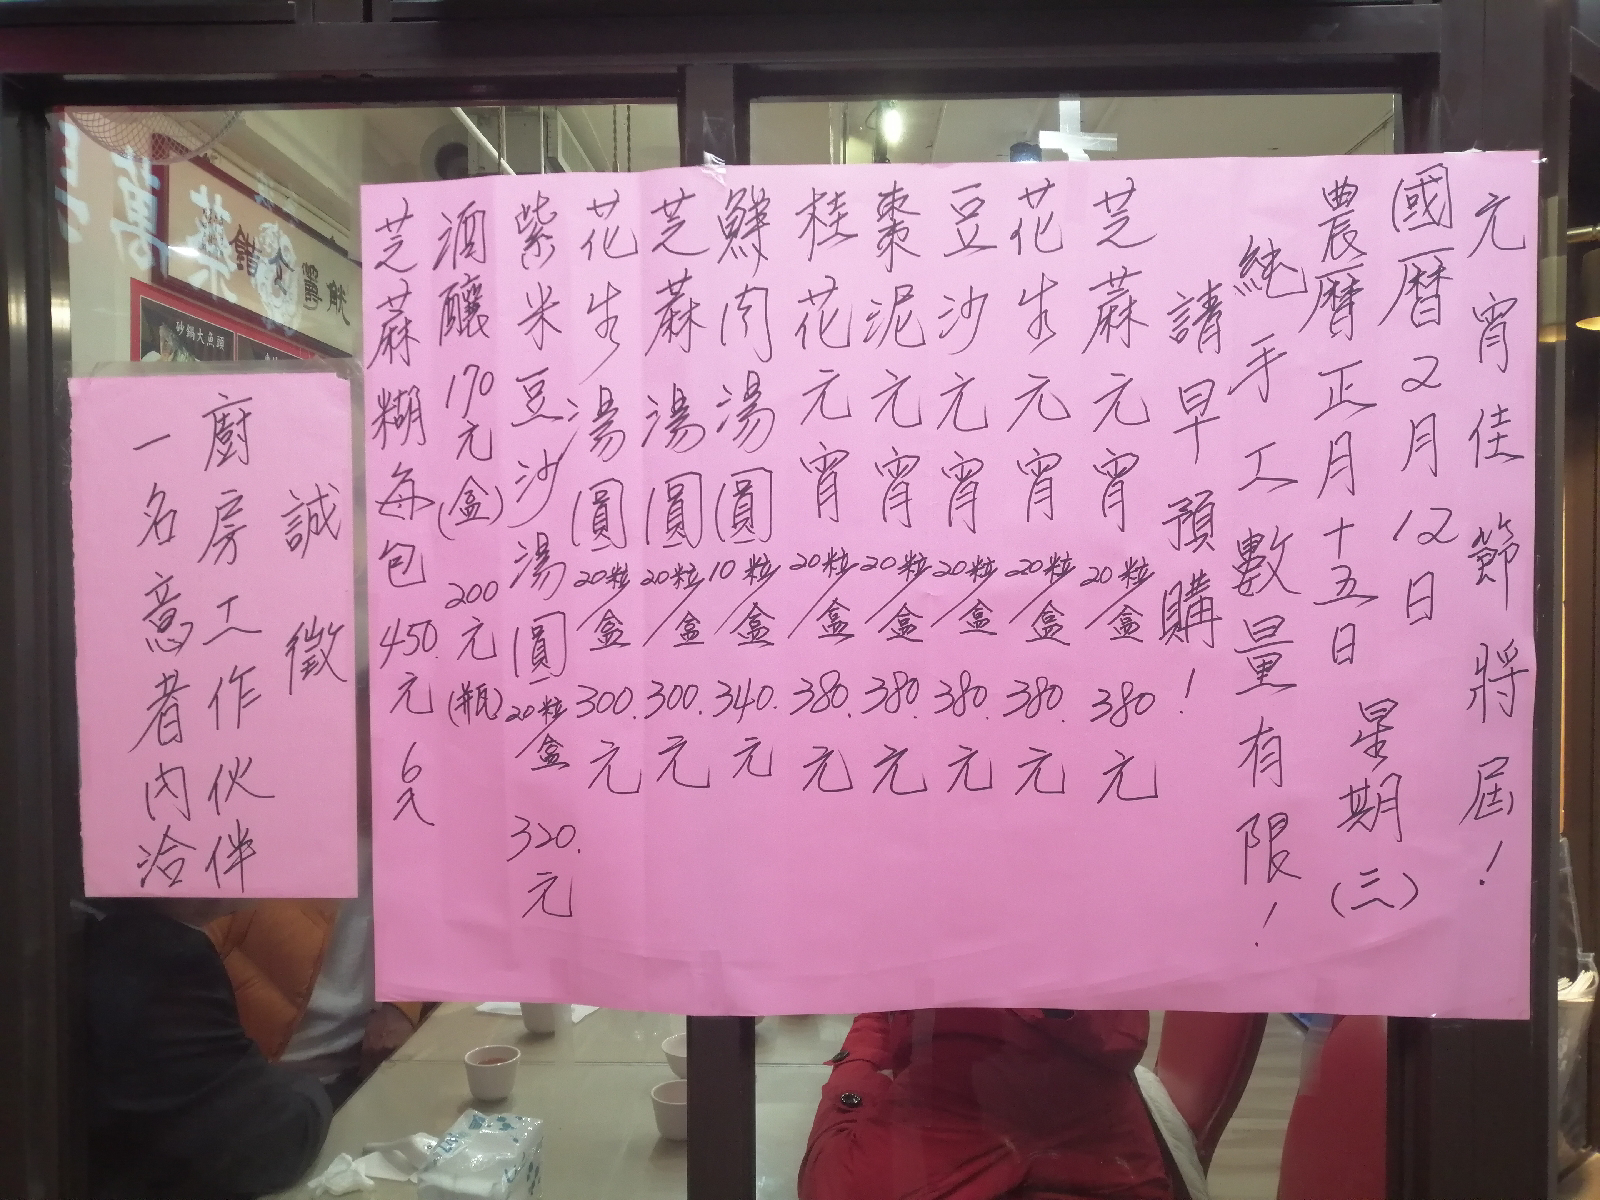 元宵佳節將屆！
國曆2月12日
農曆正月十五日 星期(三)
純手工數量有限！
請早預購！
芝麻元宵20粒/盒380元
花生元宵20粒/盒380.元
豆沙元宵20粒/盒380.元
棗泥元宵20粒/盒380.元
桂花元宵20粒/盒380.元
鮮肉湯圓10粒/盒340.元
芝蔴湯圓20粒/盒300.元
花生湯圓20粒/盒300.元
紫米豆沙湯圓20粒/盒320.元
酒釀170元(盒) 200元(瓶)
芝蔴糊每包450元 6入
誠徵
廚房工作伙伴
一名意者內洽
砂鍋大魚頭